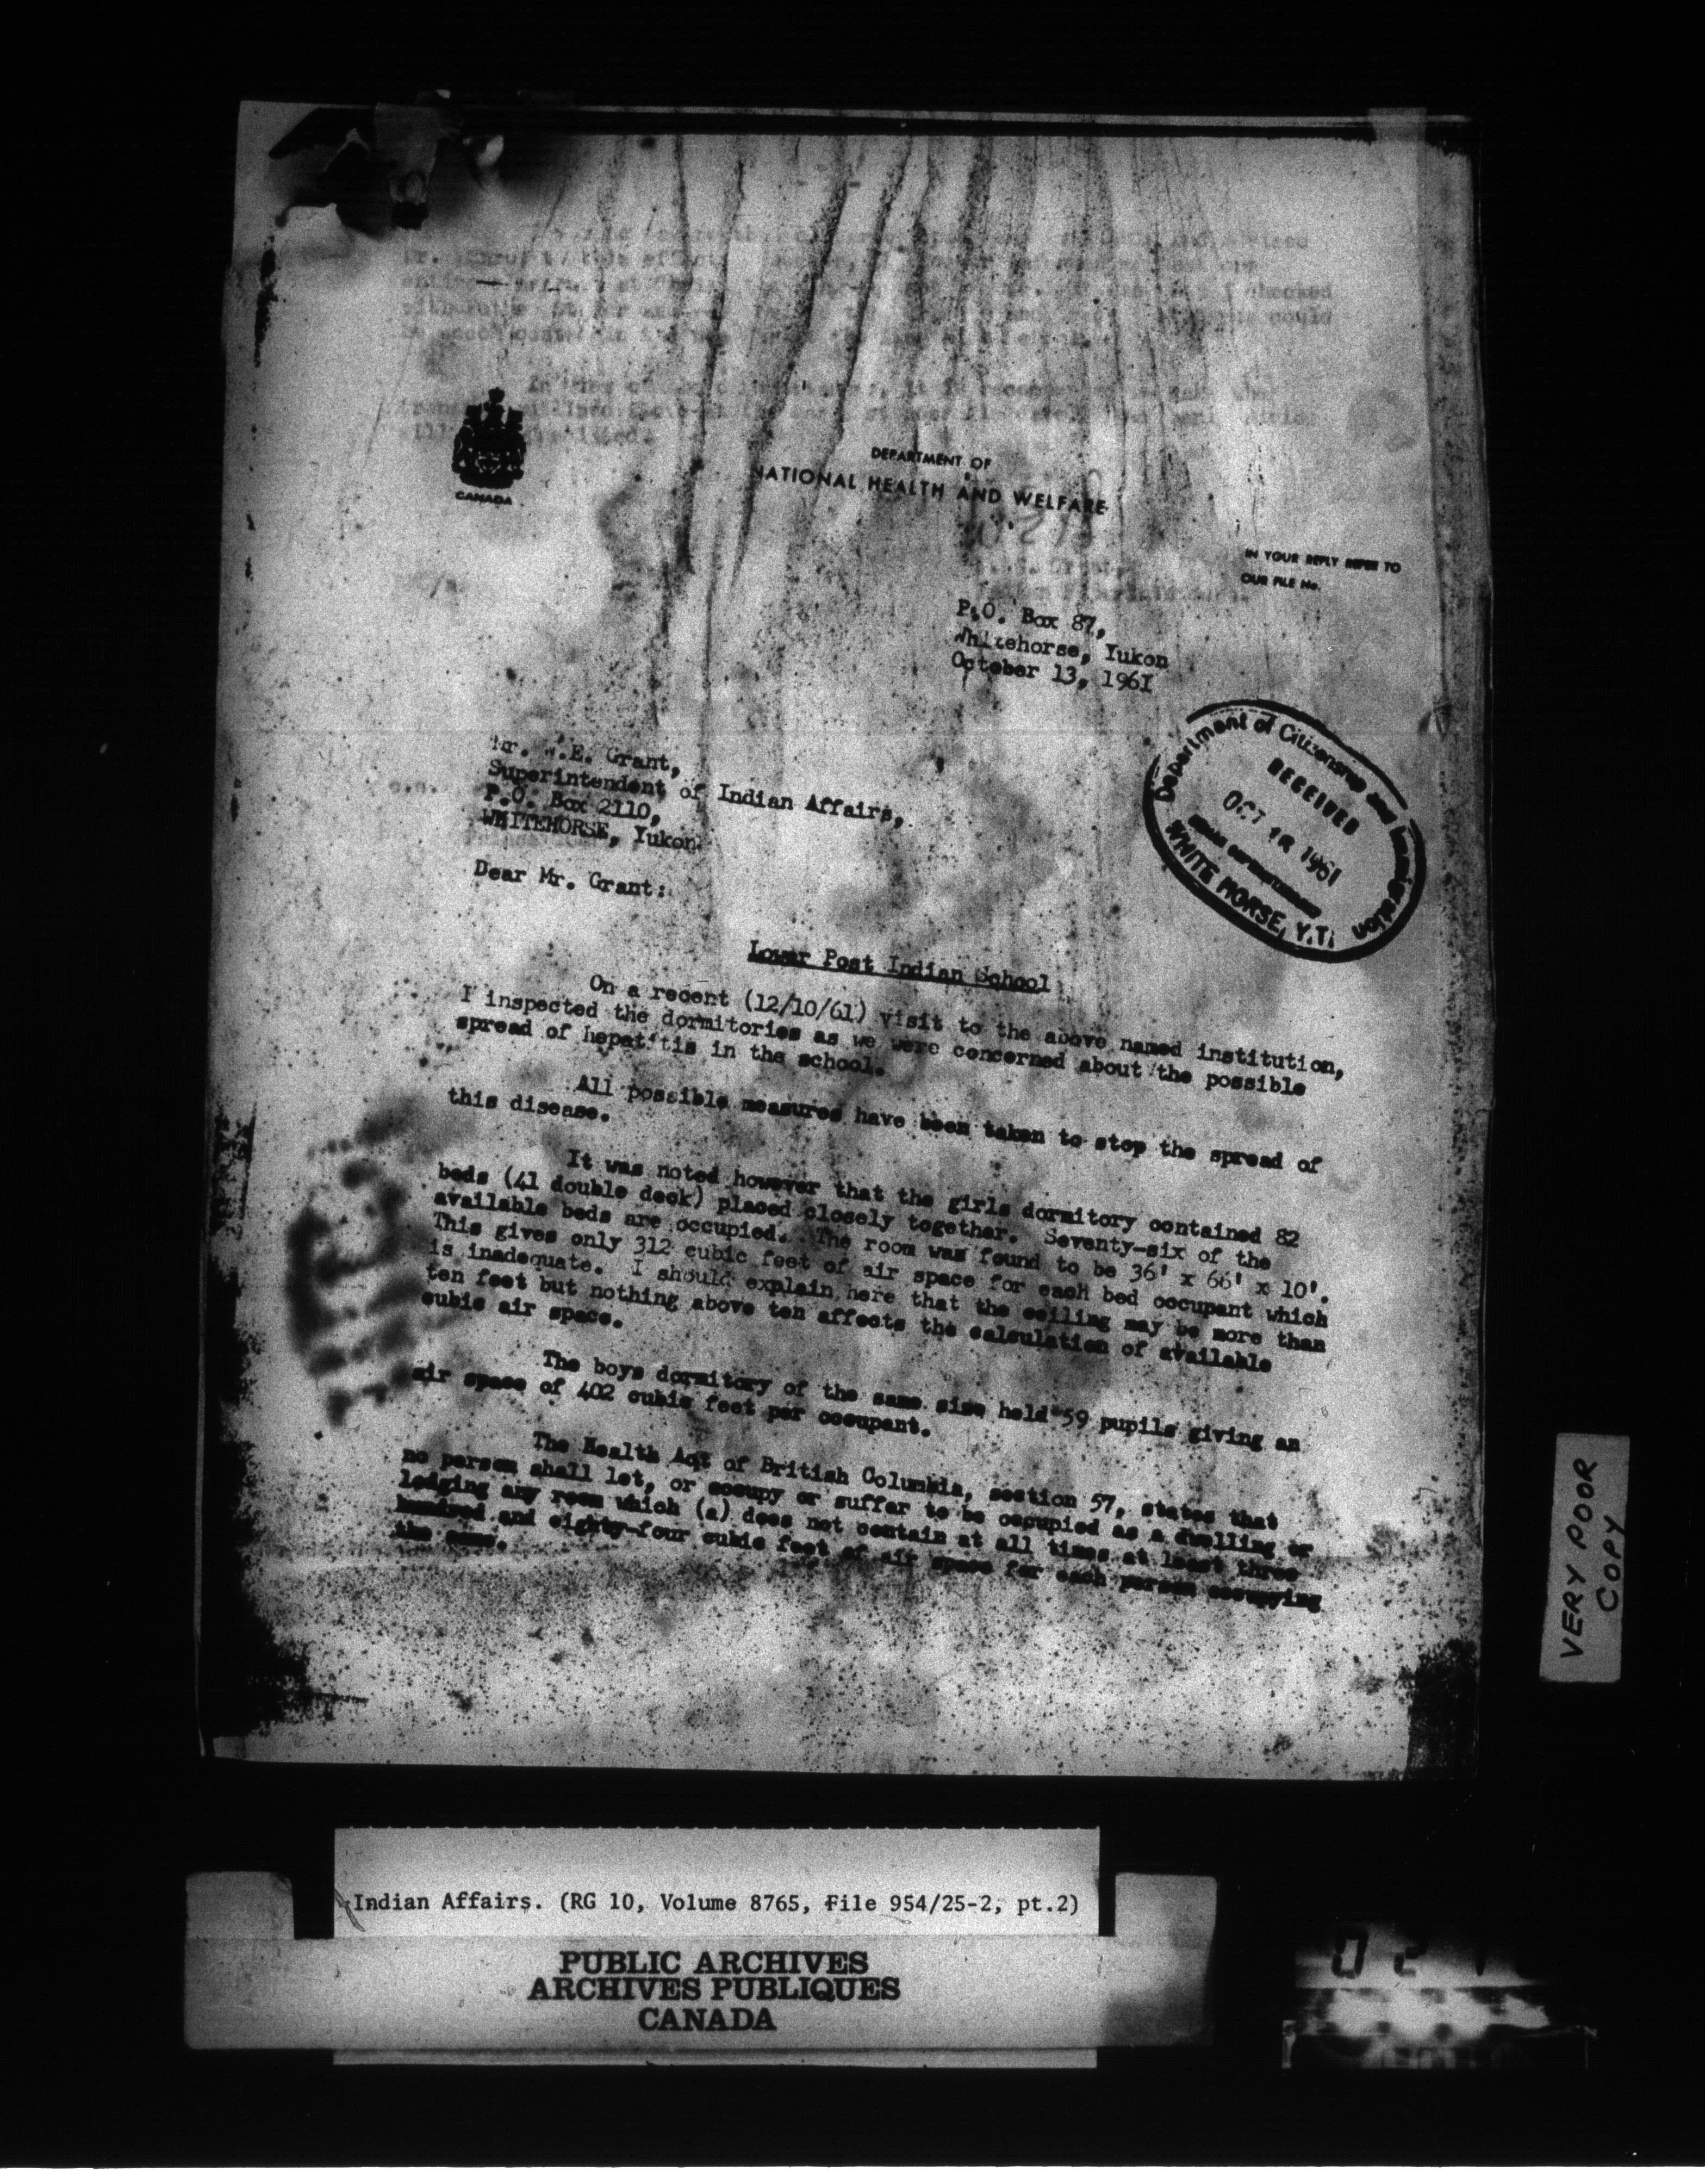 CANADA
DEPARTMENT OF
NATIONAL HEALTH AND WELFARE
IN YOUR REPLY REFER TO
OUR FILE No.
P.O. Box 87,
Whitehorse, Yukon
October 13, 1961
Department of Citizenship and Immigration
RECEIVED
OCT 18 1961
WHITE HORSE, Y.T.
Mr. .E. Grant,
Superintendent of Indian Affairs,
P.O. Box 2110,
WHITEHORSE, Yukon
Dear Mr. Grant:
Lower Post Indian School
On a recent (12/10/61) visit to the above named institution,
I inspected the dormitories as we were concerned about the possible
spread of hepatitis in the school.
All possible measures have been taken to stop the spread of
this disease.
It was noted however that the girls dormitory contained 82
beds (41 double deck) placed closely together. Seventy-six of the
available beds are occupied. The room was found to be 36' x 66' x 10'.
This gives only 312 cubic feet of air space for each bed occupant which
is inadequate. I should explain here that the ceiling may be more than
ten feet but nothing above ten affects the calculation of available
cubic air space.
The boys dormitory of the same size held 59 pupils giving an
air space of 402 cubic feet per occupant.
The Health Act of British Columbia, section 57, states that
no person shall let, or occupy or suffer to be occupied as a dwelling or
lodging any room which (a) does not contain at all times at least three
hundred and eighty-four cubic feet of air space for each person occupying
the same.
VERY POOR
COPY
Indian Affairs. (RG 10, Volume 8765, File 954/25-2, pt.2)
PUBLIC ARCHIVES
ARCHIVES PUBLIQUES
CANADA